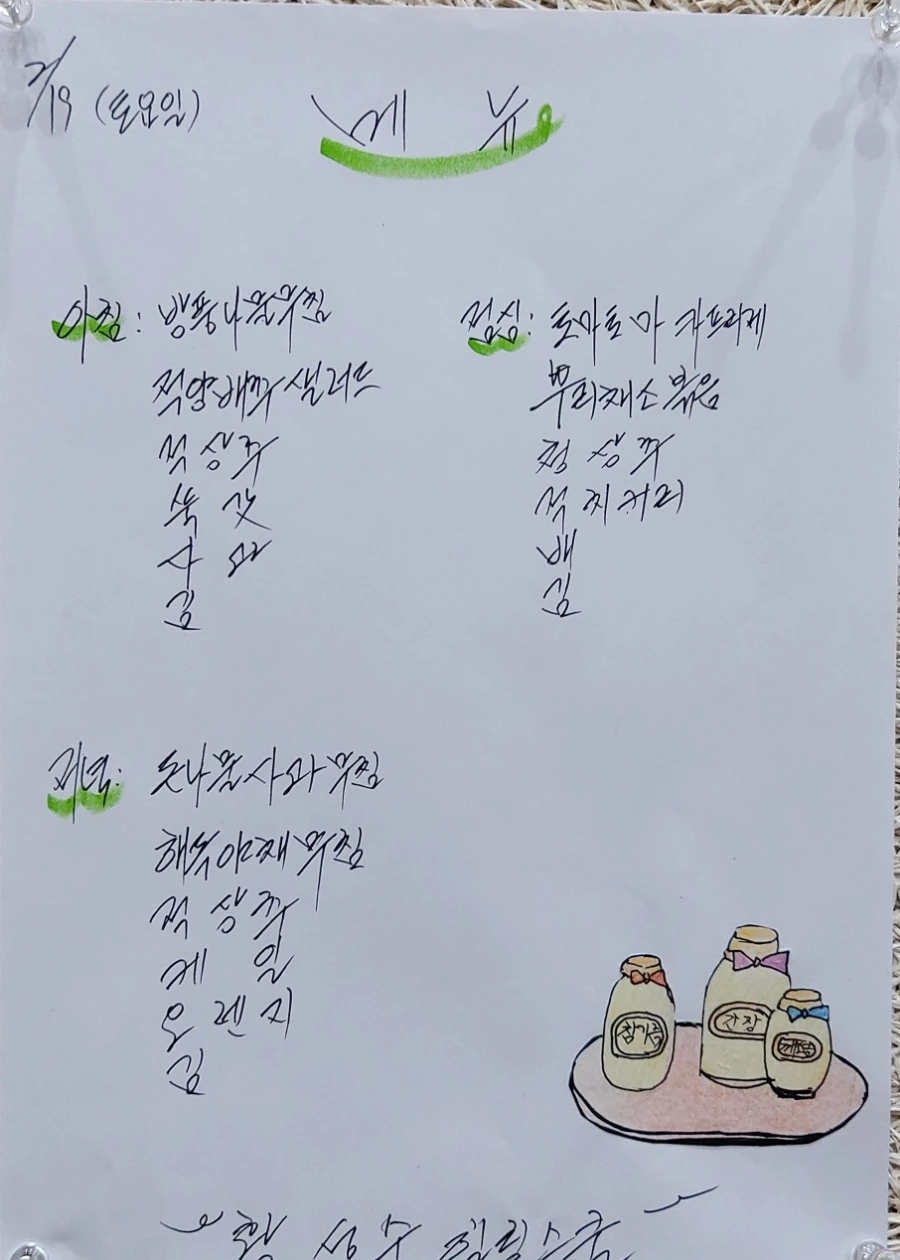 2/19 (토요일)
메 뉴
아침: 방풍나물무침
적양배추샐러드
적상추
쑥갓
사과
김
점심: 토마토 마 카프라제
뿌리채소볶음
청상추
적치커리
배
김
저녁: 돗나물사과무침
해초야채무침
적상추
케일
오렌지
김
참기름
간장
깨소금
황성수힐링스쿨